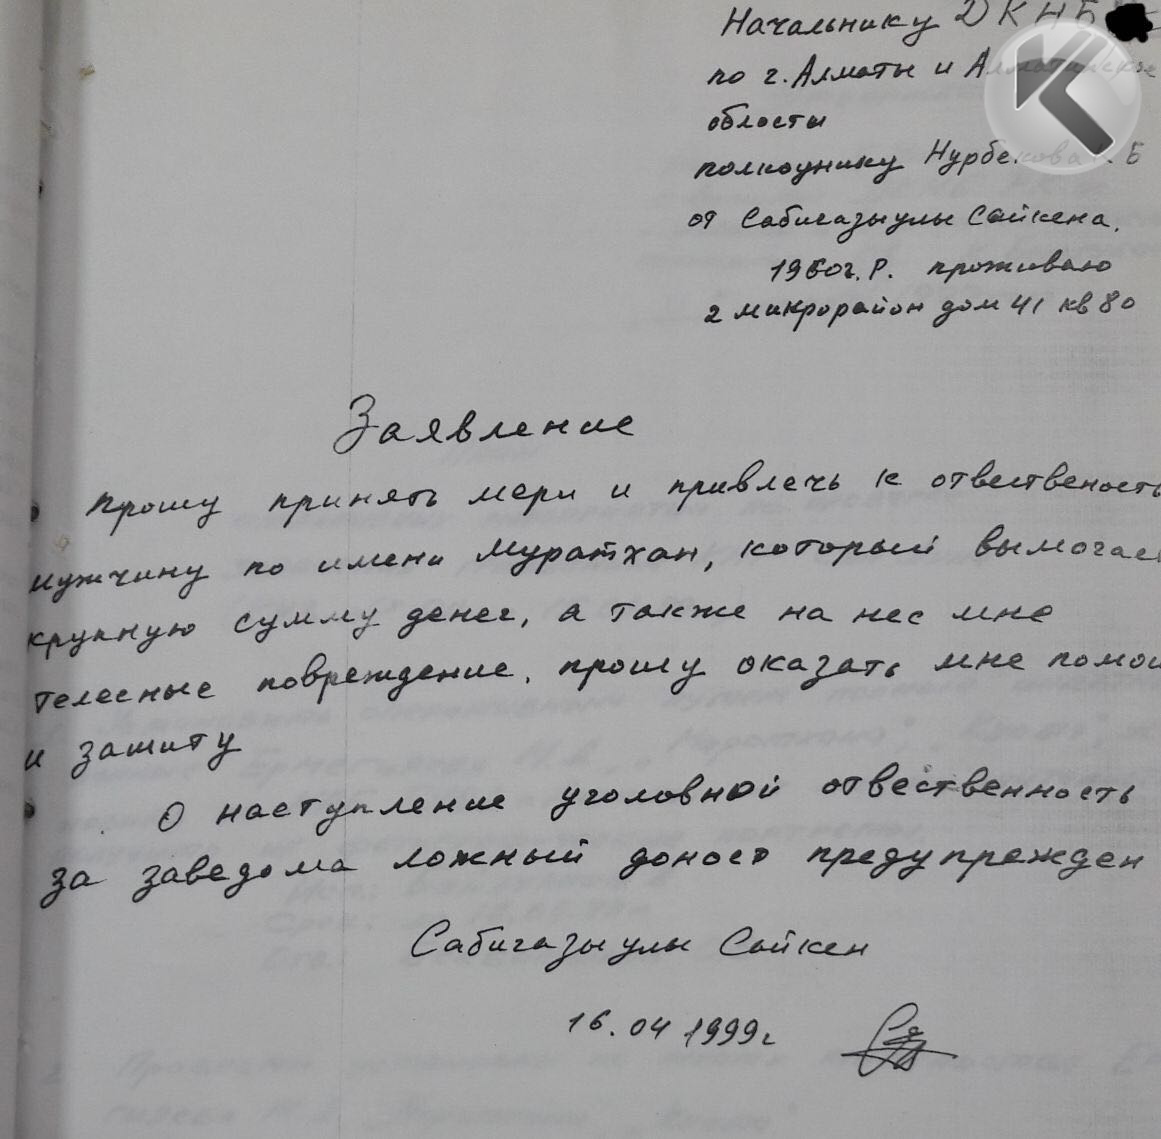 Начальнику ДКНБ
по г. Алматы и Алматинской
области
полкоунику Нурбекова К Б
от Сабигазыулы Сайкена.
1960г. р. проживаю
2 микрорайон дом 41 кв 80
Заявление
Прошу принять мери и привлечь к отвественость
мужчину по имени Муратхан, который вымогает
крупную сумму денег, а также на нес мне
телесные повреждение. прошу оказать мне помощ
и защиту
О наступление уголовной отвественность
за заведома ложный донос предупрежден
Сабигазыулы Сайкен
16.04 1999г